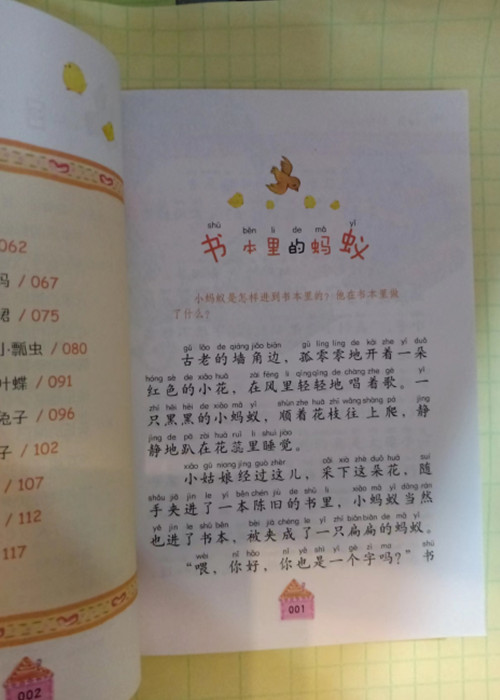 062
妈 / 067
裙 / 075
小瓢虫 / 080
叶蝶 / 091
兔子 / 096
子 / 102
/ 107
/ 112
117
002
shū běn li de mǎ yǐ
书本里的蚂蚁
小蚂蚁是怎样进到书本里的？他在书本里做
了什么？
gǔ lǎo de qiáng jiǎo biān gū líng líng de kāi zhe yì duǒ
古老的墙角边，孤零零地开着一朵
hóng sè de xiǎo huā zài fēng lǐ qīng qīng de chàng zhe gē yì
红色的小花，在风里轻轻地唱着歌。一
zhī hēi hēi de xiǎo mǎ yǐ shùn zhe huā zhī wǎng shàng pá jìng
只黑黑的小蚂蚁，顺着花枝往上爬，静
jìng de pā zài huā ruǐ lǐ shuì jiào
静地趴在花蕊里睡觉。
xiǎo gū niang jīng guò zhèr cǎi xià zhè duǒ huā suí
小姑娘经过这儿，采下这朵花，随
shǒu jiā jìn le yì běn chén jiù de shū lǐ xiǎo mǎ yǐ dāng rán
手夹进了一本陈旧的书里，小蚂蚁当然
yě jìn le shū běn bèi jiā chéng le yì zhī biǎn biǎn de mǎ yǐ
也进了书本，被夹成了一只扁扁的蚂蚁。
wèi nǐ hǎo nǐ yě shì yí gè zì ma shū
“喂，你好，你也是一个字吗？”书
001